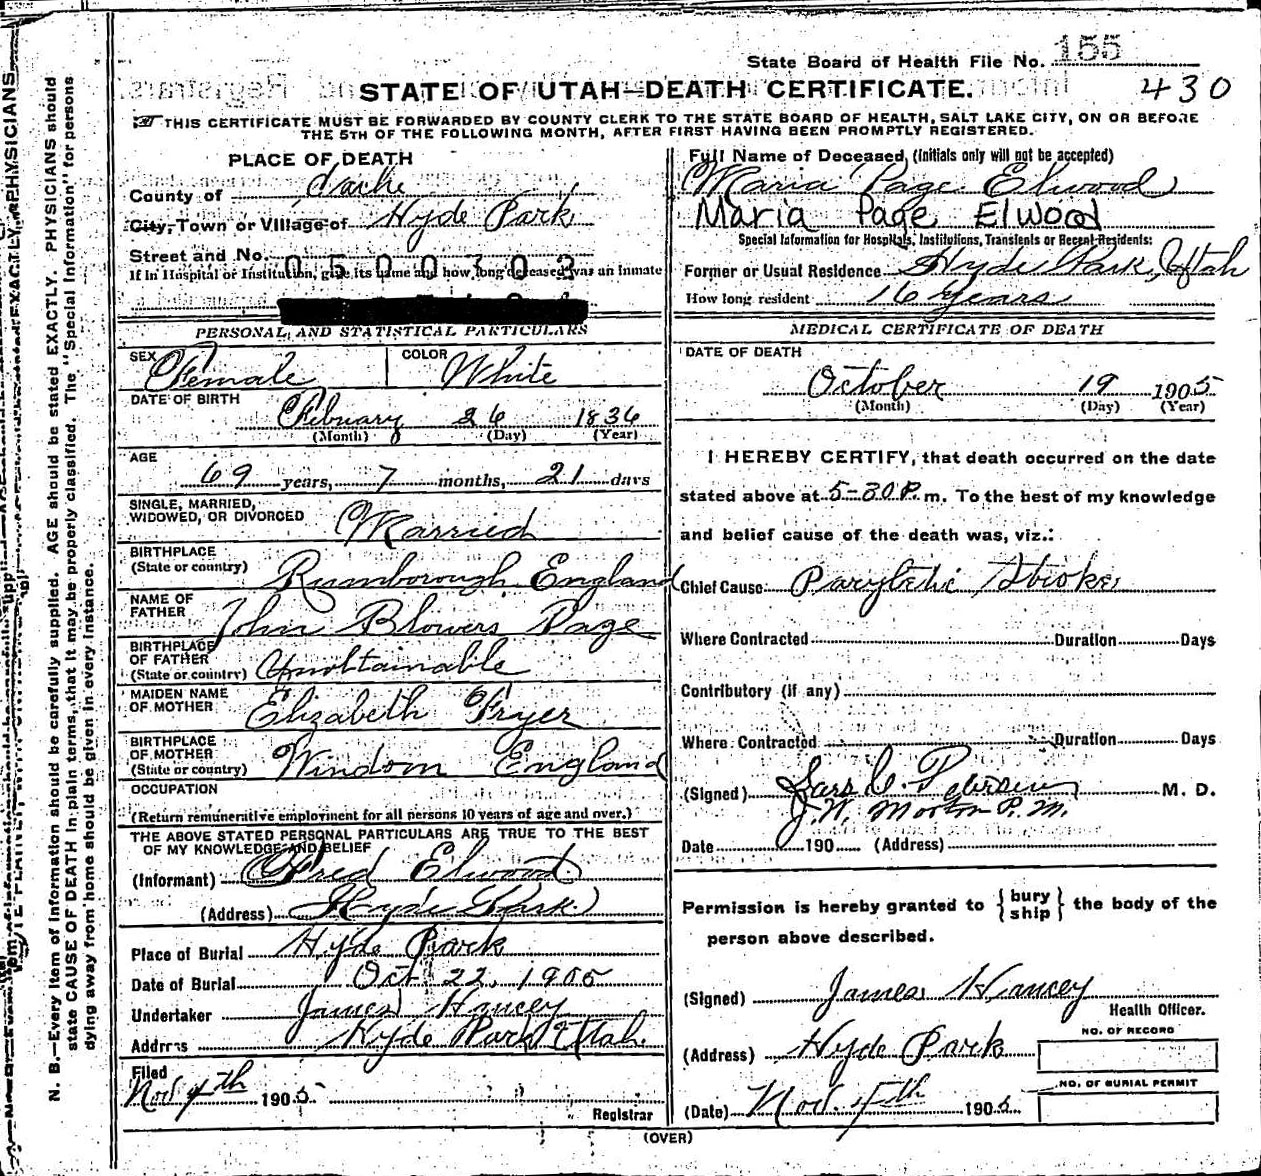 State Board of Health File No. 155
430
STATE OF UTAH—DEATH CERTIFICATE.
THIS CERTIFICATE MUST BE FORWARDED BY COUNTY CLERK TO THE STATE BOARD OF HEALTH, SALT LAKE CITY, ON OR BEFORE
THE 5TH OF THE FOLLOWING MONTH, AFTER FIRST HAVING BEEN PROMPTLY REGISTERED.
PLACE OF DEATH
County of Cache
City, Town or Village of Hyde Park
Street and No.
0500303
If in Hospital or Institution, give its name and how long deceased was an inmate
PERSONAL AND STATISTICAL PARTICULARS
SEX Female COLOR White
DATE OF BIRTH
February 26 1836
(Month) (Day) (Year)
AGE
69 years, 7 months, 21 days
SINGLE, MARRIED,
WIDOWED, OR DIVORCED Married
BIRTHPLACE
(State or country) Rumborough England
NAME OF
FATHER John Blowers Page
BIRTHPLACE
OF FATHER
(State or country) Unobtainable
MAIDEN NAME
OF MOTHER Elizabeth Fryer
BIRTHPLACE
OF MOTHER
(State or country) Windom England
OCCUPATION
(Return remunerative employment for all persons 10 years of age and over.)
THE ABOVE STATED PERSONAL PARTICULARS ARE TRUE TO THE BEST
OF MY KNOWLEDGE AND BELIEF
(Informant) Fred Elwood
(Address) Hyde Park
Place of Burial Hyde Park
Date of Burial Oct 22, 1905
Undertaker James Hancey
Address Hyde Park Utah
Filed
Nov 4th 1905
Registrar
Full Name of Deceased (Initials only will not be accepted)
Maria Page Elwood
Maria Page Elwood
Special Information for Hospitals, Institutions, Transients or Recent Residents:
Former or Usual Residence Hyde Park, Utah
How long resident 16 years
MEDICAL CERTIFICATE OF DEATH
DATE OF DEATH
October 19 1905
(Month) (Day) (Year)
I HEREBY CERTIFY, that death occurred on the date
stated above at 5-30 P. m. To the best of my knowledge
and belief cause of the death was, viz.:
Chief Cause Paryletic Stroke
Where Contracted Duration Days
Contributory (if any)
Where Contracted Duration Days
(Signed) Lars C. Petersen M. D.
J. W. Morton P. M.
Date 190 (Address)
Permission is hereby granted to { bury ship } the body of the
person above described.
(Signed) James Hancey
Health Officer.
(Address) Hyde Park
NO. OF RECORD
NO. OF BURIAL PERMIT
(Date) Nov. 4th 1905
(OVER)
N. B.—Every item of information should be carefully supplied. AGE should be stated EXACTLY. PHYSICIANS should
state CAUSE OF DEATH in plain terms, that it may be properly classified. The "Special Information" for persons
dying away from home should be given in every instance.